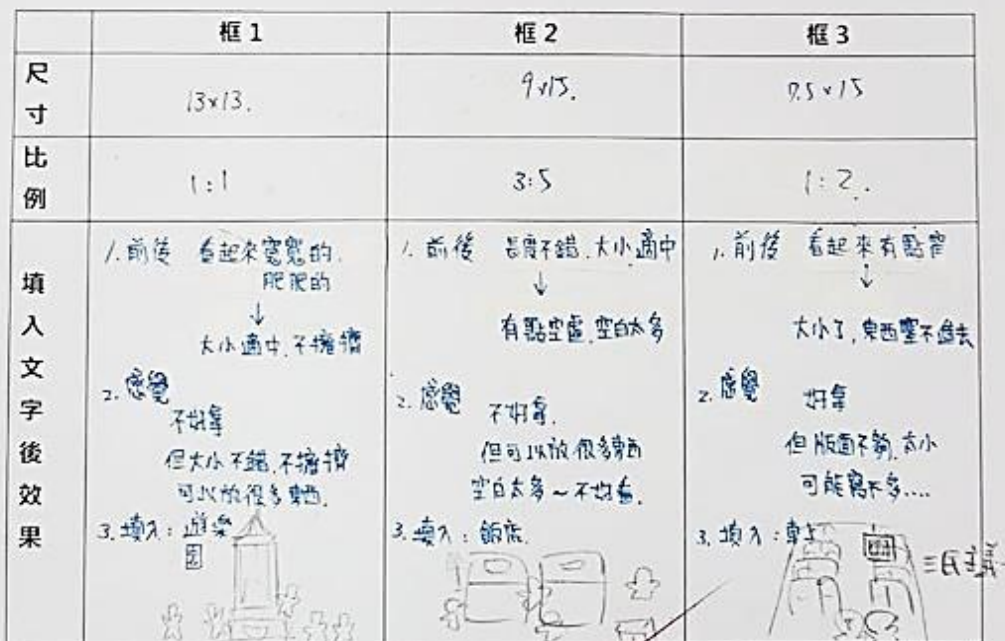 框 1 框 2 框 3
尺寸 13x13. 9x15. 7.5x15
比例 1:1 3:5 1:2.
填入文字後效果
1. 前後 看起來寬寬的.
肥肥的
↓
大小適中,不擁擠
2. 感覺
不好拿
但大小不錯,不擁擠
可以放很多東西.
3. 填入: 遊樂
園
1. 前後 長度不錯,大小適中
↓
有點空虛,空白太多
2. 感覺 不好拿.
但可以放很多東西
空白太多~不好看.
3. 填入: 飯店
1. 前後 看起來有點窄
↓
太小了,東西塞不進去
2. 感覺 好拿
但版面不夠,太小
可能寫不多....
3. 填入: 車
三民主義